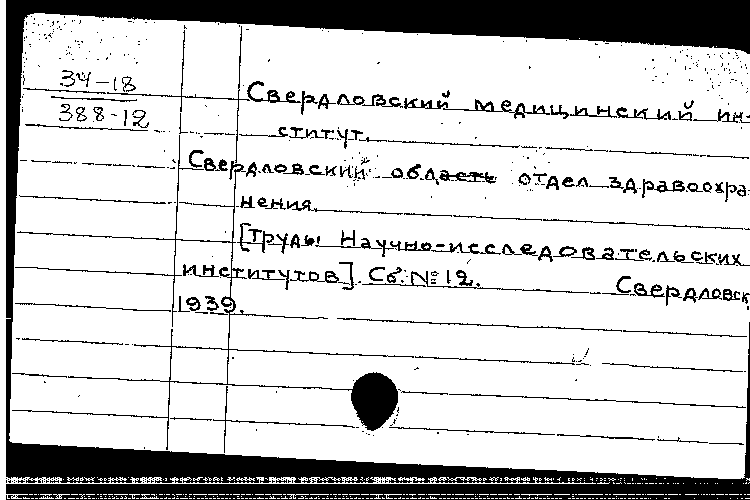 34-18
388-12
Свердловский медицинский ин-
ститут.
Свердловский область отдел здравоохра
нения.
[Труды Научно-исследовательских
институтов]. Сб. № 12. Свердловск
1939.